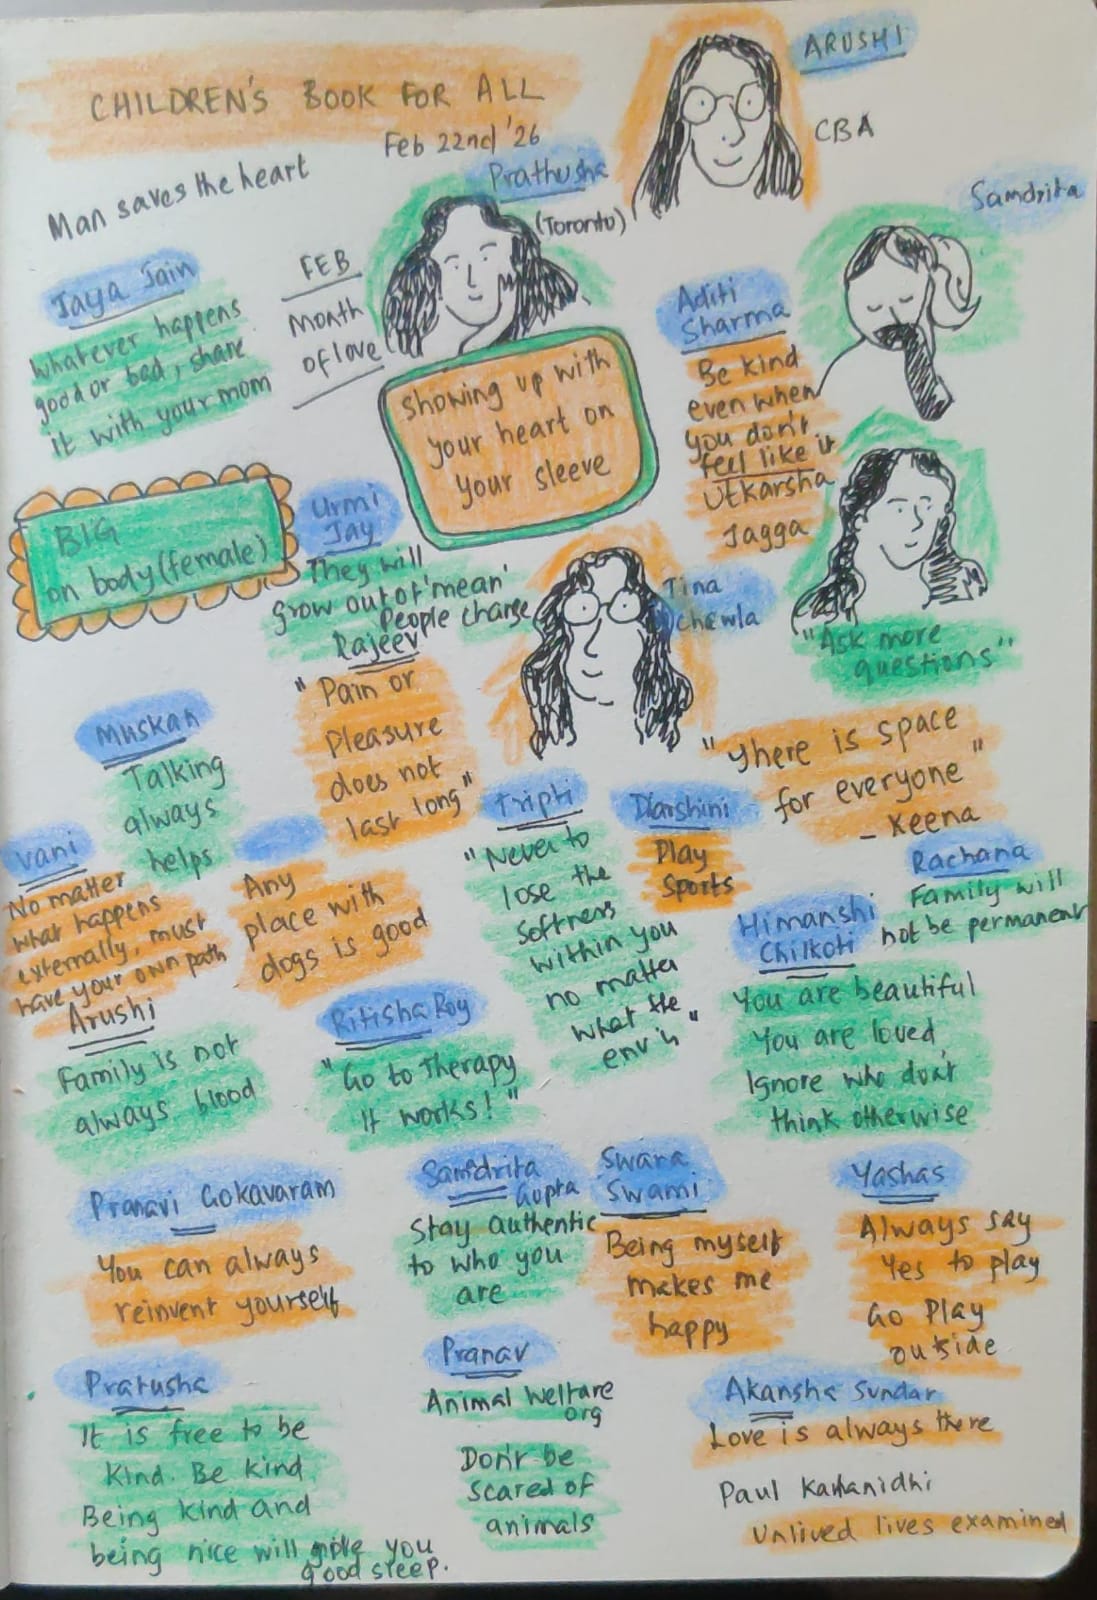 CHILDREN'S BOOK FOR ALL
Feb 22nd '26
ARUSHI
CBA
Man saves the heart
Prathusha
(Toronto)
Samdrita
Jaya Jain
whatever happens
good or bad, share
it with your mom
FEB
Month
of love
showing up with
your heart on
your sleeve
Aditi
Sharma
Be kind
even when
you don't
feel like it
Utkarsha
Jagga
BIG
on body (female)
Urmi
Jay
They will
grow out of 'mean'
People change
Rajeev
"Pain or
pleasure
does not
last long"
Tina
Chawla
"Ask more
questions"
"There is space
for everyone"
- Keena
Muskan
Talking
always
helps
Vani
No matter
what happens
externally, must
have your own path
Any
place with
dogs is good
Tripti
"Never to
lose the
softness
within you
no matter
what the
env is"
Darshini
Play
Sports
Rachana
Family will
not be permanent
Himanshi
Chilkoti
You are beautiful
You are loved,
Ignore who don't
think otherwise
Arushi
Family is not
always blood
Ritisha Roy
"Go to Therapy
It works!"
Pranavi Gokavaram
You can always
reinvent yourself
Samdrita
Gupta
Stay authentic
to who you
are
Swara
Swami
Being myself
makes me
happy
Yashas
Always say
Yes to play
Go Play
outside
Pratusha
It is free to be
Kind. Be kind
Being kind and
being nice will give you
good sleep.
Pranav
Animal Welfare
org
Don't be
scared of
animals
Akansha Sundar
Love is always there
Paul
Unlived lives examined